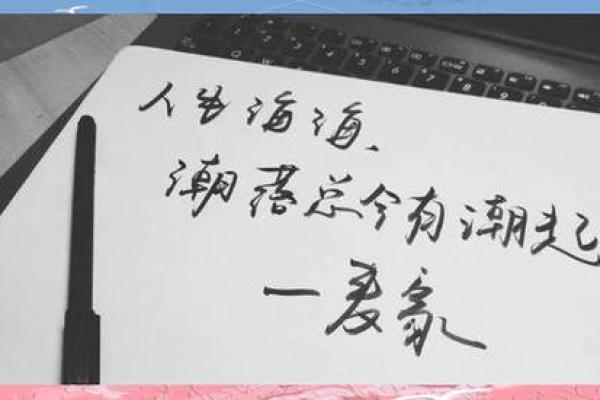 人生海海、
潮落总会有潮起
—麦家